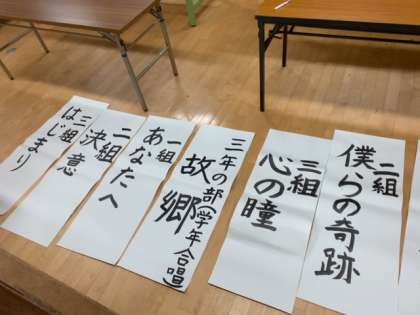 二組
僕らの奇跡
三組
心の瞳
三年の部(学年合唱)
故郷
一組
あなたへ
二組
決意
三組
はじまり